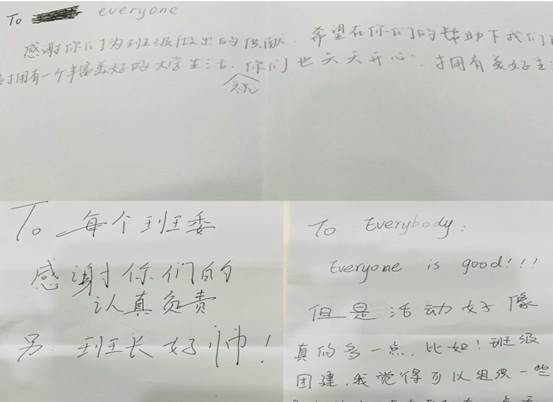 To everyone
感谢你们为班级做出的贡献，希望在你们的帮助下我们
拥有一个丰富美好的大学生活，祝你们也天天开心，拥有美好生
To 每个班委
感谢你们的
认真负责
另 班长好帅！
To Everybody:
Everyone is good!!!
但是活动好像
真的多一点，比如！班级
团建，我觉得可以组织一些